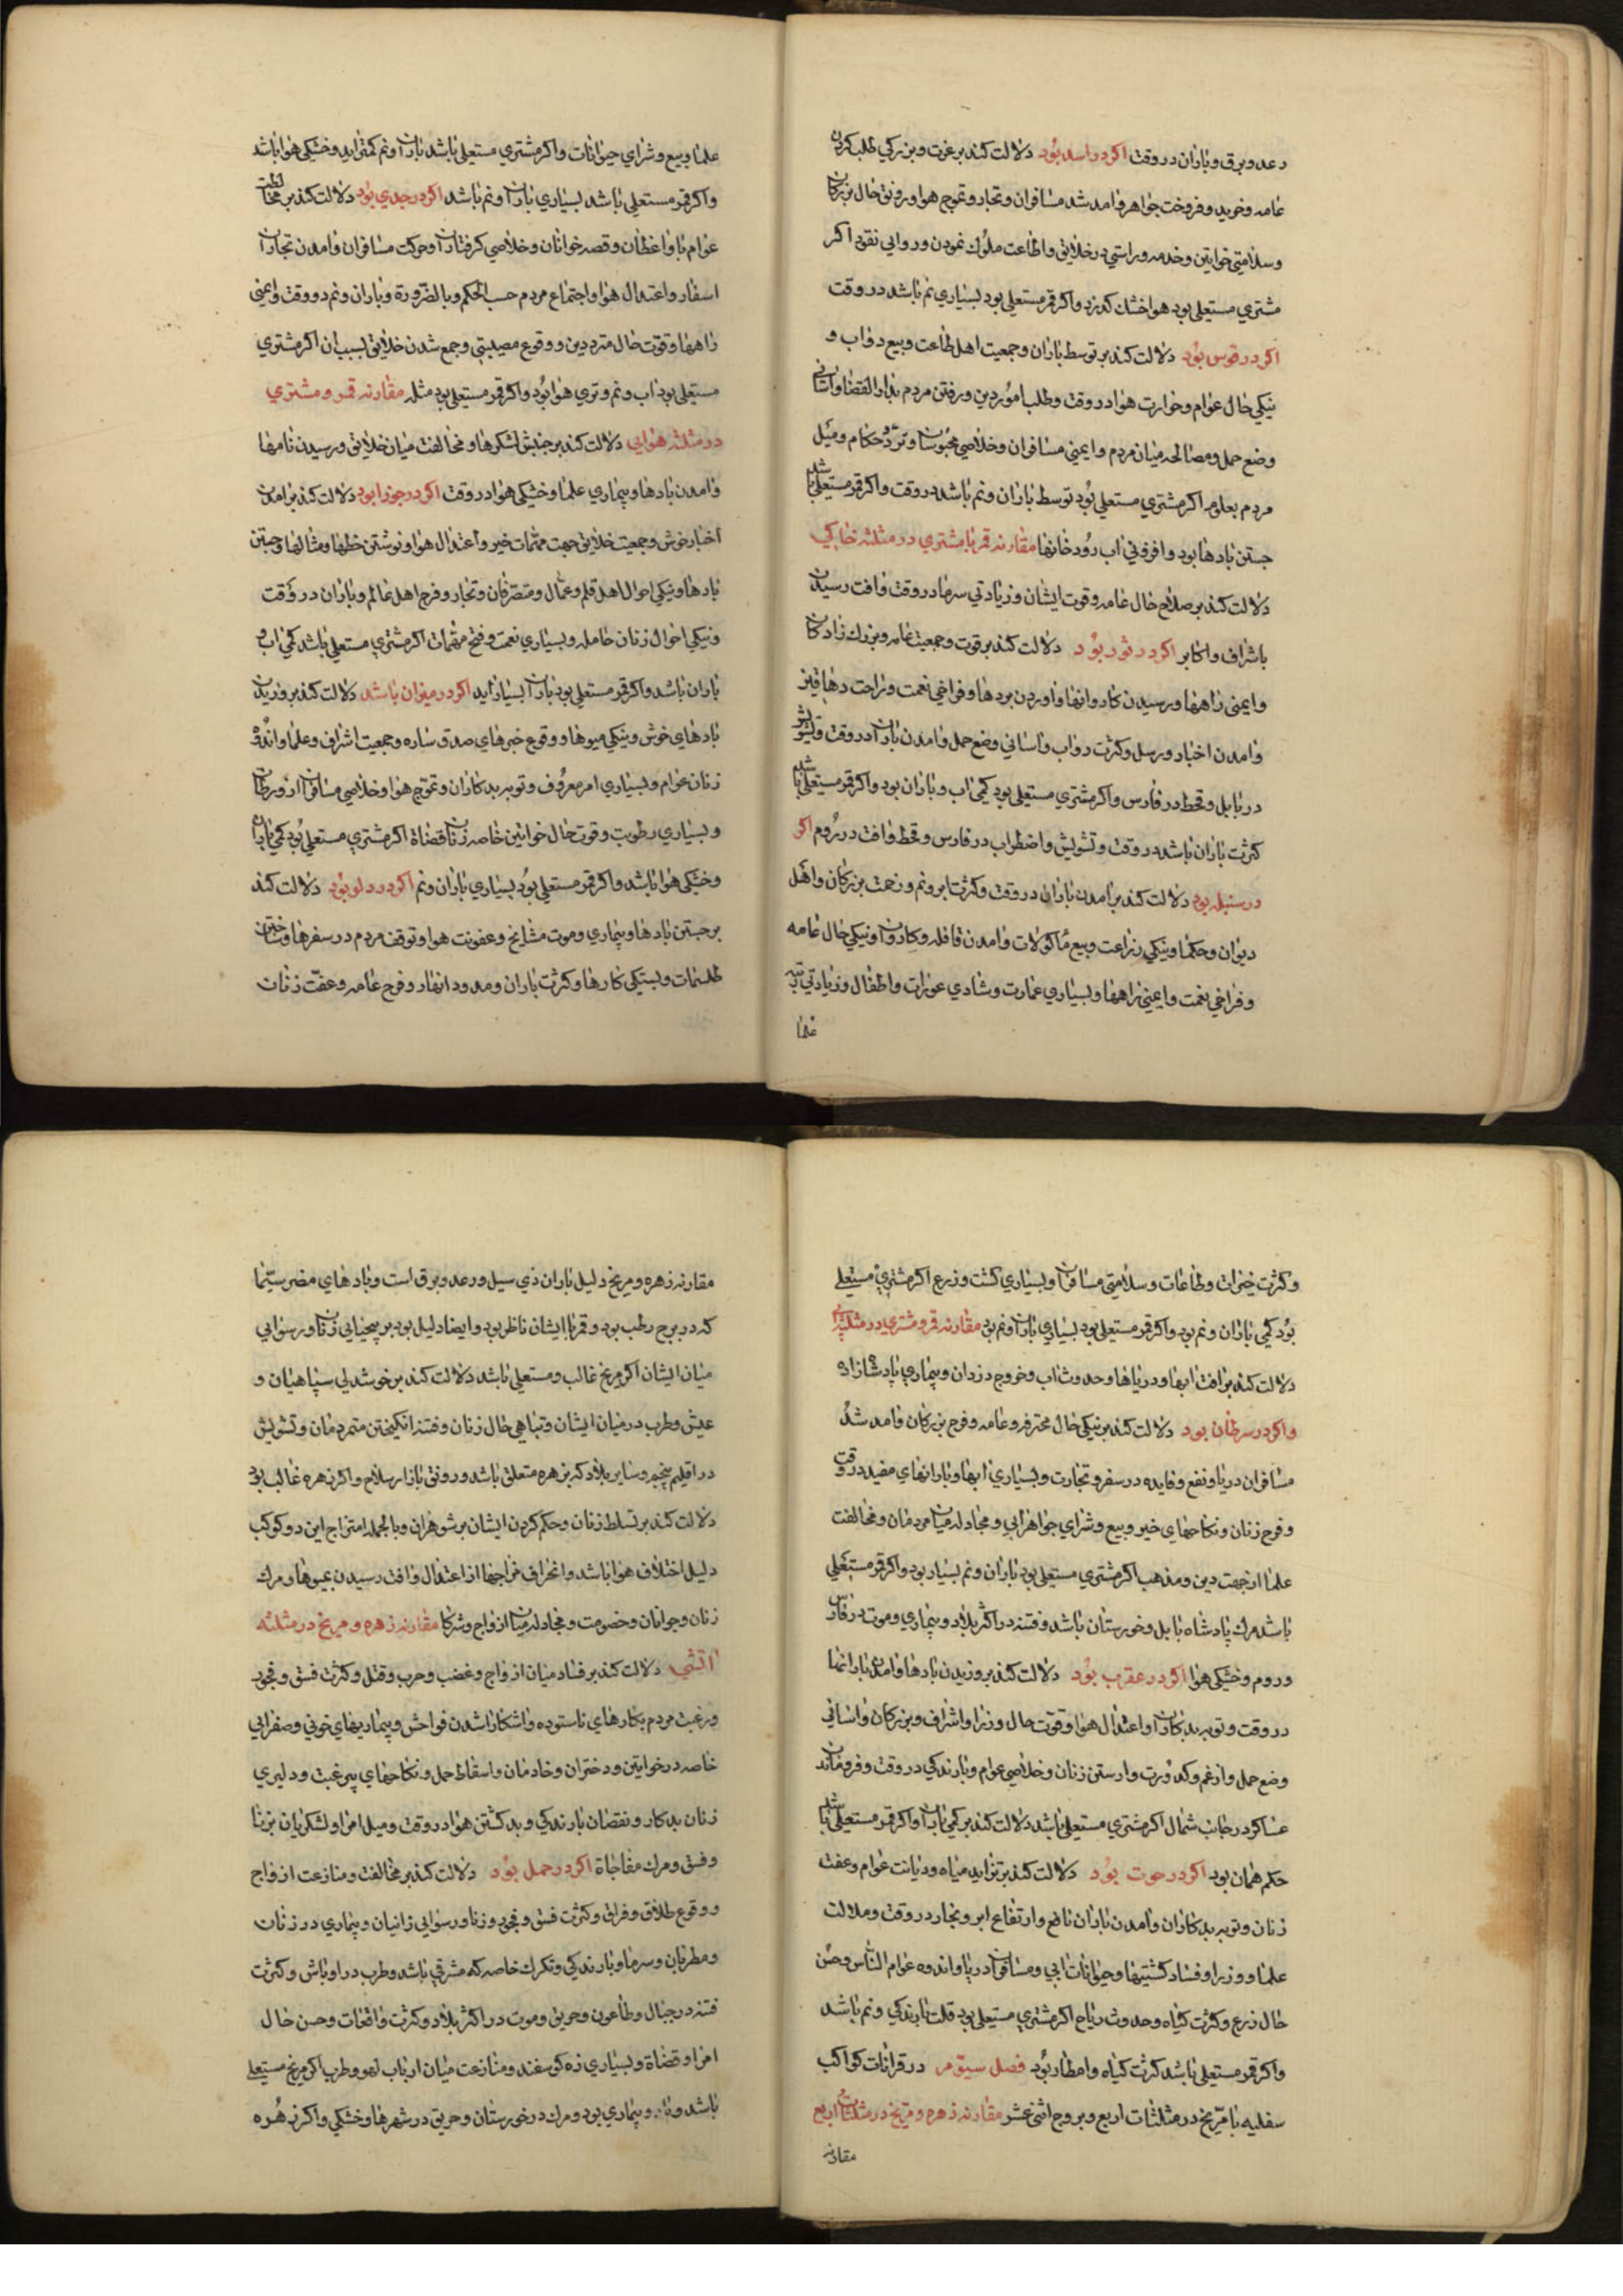 رعد و برق و باران در وقت اکر در اسد بود دلالت کند بر عزت و بزرکی طلب کردن
عامه و خرید و فروخت جواهر و امد شد مسافران و تجار و تموج هوا و رونق حال بزرکان
وسلامتی خواتین و خدمه و راستی در خلایق و اطاعت ملوک نمودن و روایی نقود اکر
مشتري مستعلی بود هوا خشك کذرد و اکر قمر مستعلی بود بسیاري نم باشد در وقت
اکر در قوس بود دلالت کند بر توسط باران و جمعیت اهل طاعت و بیع دواب و
نیکی حال عوام و حرارت هوا در وقت و طلب امور دین و رفتن مردم بدار القضا و اسانی
وضع حمل و مصالحه میان مردم و ایمنی مسافران و خلاصی محبوسان و تردد حکام و میل
مردم بعلوم اکر مشتري مستعلی بود توسط باران و نم باشد در وقت و اکر قمر مستعلی باشد
جستن بادها بود و افزونی اب رودخانها مقارنه قمر با مشتري در مثلثه خاکی
دلالت کند بر صلاح حال عامه و قوت ایشان و زیادتی سرما در وقت و افت رسیدن
باشراف و اکابر اکر در ثور بود دلالت کند بر قوت و جمعیت عامه و بزرك زادکان
و ایمنی راهها و رسیدن کاروانها و اوردن بردها و فراخی نعمت و راحت دهاقین
و امدن اخبار و رسل و کثرت دواب و اسانی وضع حمل و امدن باران در وقت و تشویش
در بابل و قحط در فارس و اکر مشتري مستعلی بود کمی اب و باران بود و اکر قمر مستعلی باشد
کثرت باران باشد در وقت و تشویش و اضطراب در فارس و قحط و افت در روم اکر
در سنبله بود دلالت کند بر امدن باران در وقت و کثرت ابر و نم و زحمت بزرکان و اهل
دیوان و حکما و نیکی زراعت و بیع ماکولات و امدن قافله و کاروان و نیکی حال عامه
و فراخی نعمت و ایمنی راهها و بسیاري عمارت و شادي عورات و اطفال و زیادتی
علما
علما و بیع و شراي حیوانات و اکر مشتري مستعلی باشد باران و نم کمتر اید و خشکی هوا باشد
و اکر قمر مستعلی باشد بسیاري باران و نم باشد اکر در جدي بود دلالت کند بر مخالطت
عوام با واعظان و قصه خوانان و خلاصی کرفتاران و حرکت مسافران و امدن تجار از
اسفار و اعتدال هوا و اجتماع مردم حسب الحکم و بالضرورة و باران و نم در وقت و ایمنی
راهها و قوت حال مترددین و وقوع مصیبتی و جمع شدن خلایق بسبب ان اکر مشتري
مستعلی بود اب و نم و تري هوا بود و اکر قمر مستعلی بود مثله مقارنه قمر و مشتري
در مثلثه هوایی دلالت کند بر جنبش لشکرها و مخالفت میان خلایق و رسیدن نامها
و امدن بادها و بیماري علما و خشکی هوا در وقت اکر در جوزا بود دلالت کند بر امدن
اخبار خوش و جمعیت خلایق جهت مهمات خیر و اعتدال هوا و نوشتن خطها و مثالها و جستن
بادها و نیکی احوال اهل قلم و عمال و متصرفان و تجار و فرح اهل عالم و باران در وقت
و نیکی احوال زنان حامله و بسیاري نعمت و فتح مهمات اکر مشتري مستعلی باشد کمی اب و
باران باشد و اکر قمر مستعلی بود باران بسیار اید اکر در میزان باشد دلالت کند بر وزیدن
بادهاي خوش و نیکی میوها و وقوع خبرهاي صدق ساره و جمعیت اشراف و علما و اندوه
زنان عوام و بسیاري امر معروف و توبه بدکاران و تموج هوا و خلاصی مسافران از ورطات
و بسیاري رطوبت و قوت حال خواتین خاصه زنان قضاة اکر مشتري مستعلی بود کمی باران
و خشکی هوا باشد و اکر قمر مستعلی بود بسیاري باران و نم اکر در دلو بود دلالت کند
بر جستن بادها و بیماري و موت مشایخ و عفونت هوا و توقف مردم در سفرها و ساختن
طلسمات و بستکی کارها و کثرت باران و مدود انهار و فرح عامه و عفت زنان
و کثرت خیرات و طاعات و سلامتی مسافران و بسیاري کشت و زرع اکر مشتري مستعلی
بود کمی باران و نم بود و اکر قمر مستعلی بود بسیاري باران و نم بود مقارنه قمر و مشتري در مثلثه
دلالت کند بر افت ابها و دریاها و حدوث اب و خروج دزدان و بیماري پادشازاده
و اکر در سرطان بود دلالت کند بر نیکی حال محترفه و عامه و فرح بزرکان و امد شد
مسافران دریا و نفع و فایده در سفر و تجارت و بسیاري ابها و بارانهاي مفید در وقت
و فرح زنان و نکاحهاي خیر و بیع و شراي جواهر ابی و مجادله میان مردمان و مخالفت
علما از جهت دین و مذهب اکر مشتري مستعلی بود باران و نم بسیار بود و اکر قمر مستعلی
باشد مرك پادشاه بابل و خورستان باشد و فتنه در اکثر بلاد و بیماري و موت در فارس
و روم و خشکی هوا اکر در عقرب بود دلالت کند بر وزیدن بادها و امدن بارانها
در وقت و توبه بدکاران و اعتدال هوا و قوت حال وزرا و اشراف و بزرکان و اسانی
وضع حمل و از غم و کدورت وارستن زنان و خلاصی عوام و بارندکی در وقت و فروماندن
عساکر در جانب شمال اکر مشتري مستعلی باشد دلالت کند بر کمی باران و اکر قمر مستعلی باشد
حکم همان بود اکر در حوت بود دلالت کند بر تزاید میاه و دیانت عوام و عفت
زنان و توبه بدکاران و امدن باران نافع و ارتفاع ابر و بخار در وقت و ملالت
علما و وزرا و فساد کشتیها و حیوانات ابی و مسافران دریا و اندوه عوام الناس و حسن
حال زرع و کثرت کیاه و حدوث ریاح اکر مشتري مستعلی بود قلت بارندکی و نم باشد
و اکر قمر مستعلی باشد کثرت کیاه و امطار بود فصل سیوم در قرانات کواکب
سفلیه با مریخ در مثلثات اربع و بروج اثنی عشر مقارنه زهره و مریخ در مثلثات اربع
مقارنه
مقارنه زهره و مریخ دلیل باران ذي سیل و رعد و برق است و بادهاي مضر سیما
که در برج رطب بود و قمر با ایشان ناظر بود و ایضا دلیل بود بر بیحیایی زنان و رسوایی
میان ایشان اکر مریخ غالب و مستعلی باشد دلالت کند بر خوشدلی سپاهیان و
عیش و طرب در میان ایشان و تباهی حال زنان و فتنه انکیختن متمردمان و تشویش
در اقلیم پنجم و سایر بلاد که بزهره متعلق باشد و رونق بازار سلاح و اکر زهره غالب بود
دلالت کند بر تسلط زنان و حکم کردن ایشان بر شوهران و بالجمله امتزاج این دو کوکب
دلیل اختلاف هوا باشد و انحراف مزاجها از اعتدال و افت رسیدن بمیوها و مرك
زنان و جوانان و خصومت و مجادله میان ازواج و شرکا مقارنه زهره و مریخ در مثلثه
اتشی دلالت کند بر فساد میان ازواج و غضب و حرب و قتل و کثرت فسق و فجور
و رغبت مردم بکارهاي ناستوده و اشکارا شدن فواحش و بیماریهاي خونی و صفرایی
خاصه در خواتین و دختران و خادمان و اسقاط حمل و نکاحهاي بیرغبت و دلیري
زنان بدکار و نقصان بارندکی و بد کشتن هوا در وقت و میل امرا و لشکریان بزنا
و فسق و مرك مفاجاة اکر در حمل بود دلالت کند بر مخالفت و منازعت ازواج
و وقوع طلاق و فراق و کثرت فسق و فجور و زنا و رسوایی زانیان و بیماري در زنان
و مطربان و سرما و بارندکی و تکرك خاصه که مشرقی باشد و طرب در اوباش و کثرت
فتنه در جبال و طاعون و حریق و موت در اکثر بلاد و کثرت واقعات و حسن حال
امرا و قضاة و بسیاري زه کوسفند و منازعت میان ارباب لهو و طرب اکر مریخ مستعلی
باشد وبا و بیماري بود و مرك در خورستان و حریق در شهرها و خشکی و اکر زهره